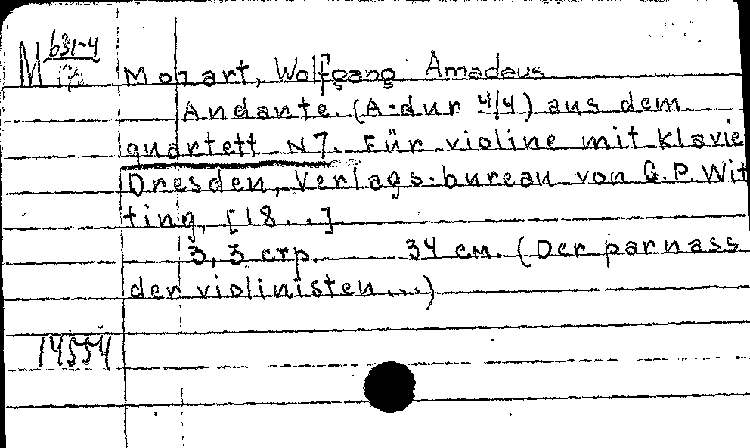 M 631-4
Mozart, Wolfgang Amadeus
Andante. (A-dur 4/4) aus dem
quartett N 7. Für violine mit Klavie
Dresden, Verlags-bureau von G.P. Wit
ting, [18...]
3, 3 стр. 34 см. (Der parnass
der violinisten...)
14554